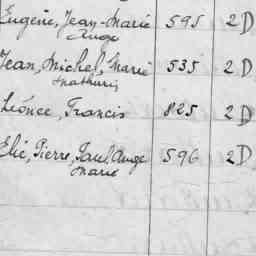 Eugène, Jean-Marie 595 2D
Ange
Jean, Michel, Marie 535 2D
Mathurin
Léonce, Francis 825 2D
Elie, Pierre, Paul, Ange 596 2D
Marie